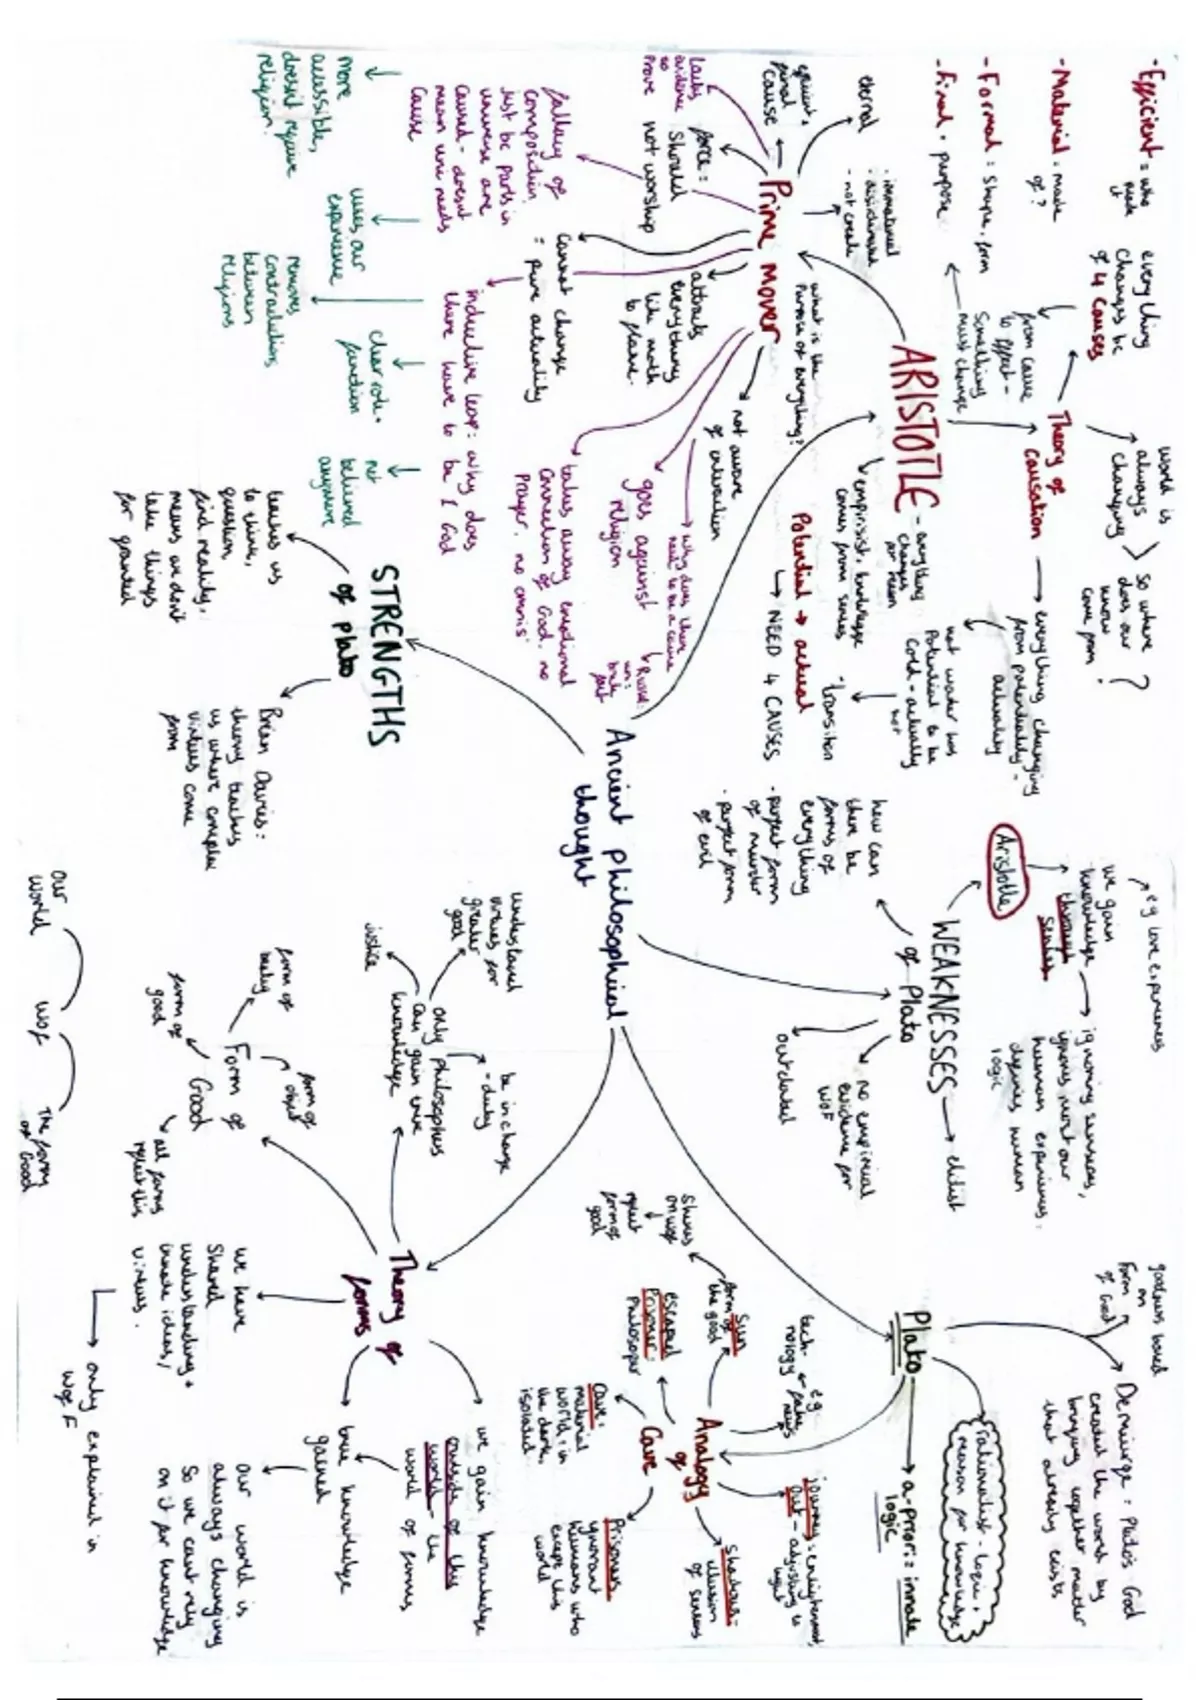 Ancient philosophical
thought
ARISTOTLE - anything
changes
for reason
Theory of
Causation
everything
changes bc
of 4 causes
- Efficient = who
made it
- Material = made
of?
- Formal = shape, form
- Final = purpose
from cause
to effect -
something
must change
world is
always
changing
so where
does our
know
come from?
everything changing
from potentiality -
actuality
hot water has
potential to be
cold - actually
hot
empiricist, knowledge
comes from senses
Potential → actual
- transition
↳ NEED 4 CAUSES
what is the
purpose of everything?
Prime Mover
efficient +
final
cause
eternal
- immaterial
- not create
force =
should
not worship
lacks
evidence
to
prove
fallacy of
composition.
just bc parts in
universe are
caused - doesnt
mean uni needs
cause
cannot change
= pure actuality
attracts
everything
like moth
to flame.
not aware
of interaction
inductive leap: why does
there have to be 1 God
why does there
need to be a cause
goes against
religion
takes away emotional
connection of God. no
prayer. no omnis
STRENGTHS
of Plato
more
accessible,
doesnt require
religion.
uses our
experience
removes
contradictions
between
religions
clear role +
function
not
believed
anymore
teaches us
to think,
question,
find reality.
means we dont
take things
for granted
Brian Davies:
theory teaches
us where complex
virtues come
from
WEAKNESSES
of Plato
Aristotle
we gain
knowledge
through
senses
eg love experiences
ignoring senses,
ignores most our
human experiences.
defies human
logic
elitist
no empirical
evidence for
WoF
outdated
how can
there be
forms of
everything
- perfect form
of murder
- perfect form
of evil
Plato
goodness based
on
Form
of Good
Demiurge: Plato's God
created the world by
bringing together matter
that already exists
rationalist - logic +
reason for knowledge
a-priori = innate
logic
Analogy
of
Cave
journey = enlightenment,
out - adjusting to
light
Shadows -
illusion
of senses
Prisoners
ignorant
humans who
escape this
world
Cave =
material
world = in
the dark.
isolated
escaped
prisoner =
philosopher
Sun
form of
the good
shines
on WoF
↓
reflect
form of
good
e.g.
fake
news
tech-
nology
Theory of
forms
we gain knowledge
outside of this
world - the
world of forms
true knowledge
gained
our world is
always changing
so we cant rely
on it for knowledge
we have
shared
understanding +
innate ideas/
virtues.
only explained in
WoF
only philosophers
can gain true
knowledge
be in charge
- duty
understand
virtues for
greater
good
justice
Form of
Good
form of
object
form of
beauty
form of
good
all forms
reflect this
Our
world
WoF
The form
of Good